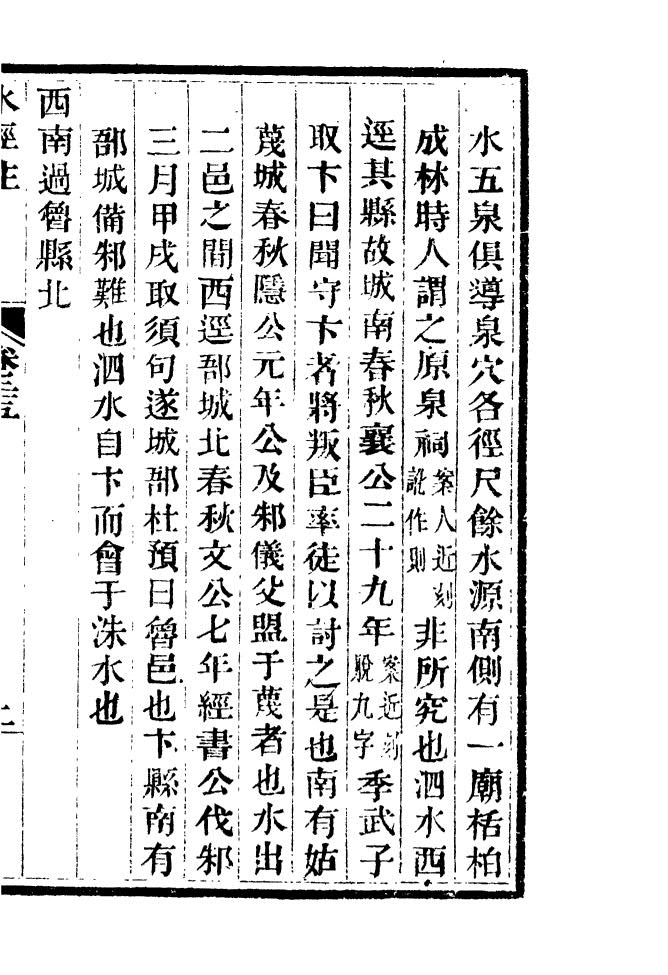 水五泉俱導泉穴各徑尺餘水源南側有一廟栝柏
成林時人謂之原泉祠案人近刻訛作則非所究也泗水西
逕其縣故城南春秋襄公二十九年案近刻脫九字季武子
取卞曰聞守卞者將叛臣率徒以討之是也南有姑
蔑城春秋隱公元年公及邾儀父盟于蔑者也水出
二邑之間西逕郚城北春秋文公七年經書公伐邾
三月甲戌取須句遂城郚杜預曰魯邑也卞縣南有
郚城備邾難也泗水自卞而會于洙水也
西南過魯縣北
水經注 卷二十五 二